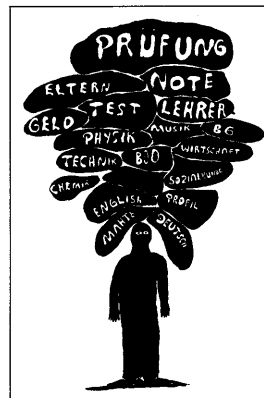 PRÜFUNG
ELTERN NOTE
GELD TEST LEHRER
PHYSIK MUSIK BG
TECHNIK BIO WIRTSCHAFT
CHEMIE SOZIALKUNDE
ENGLISH PROFIL
MAHTE DEUTSCH